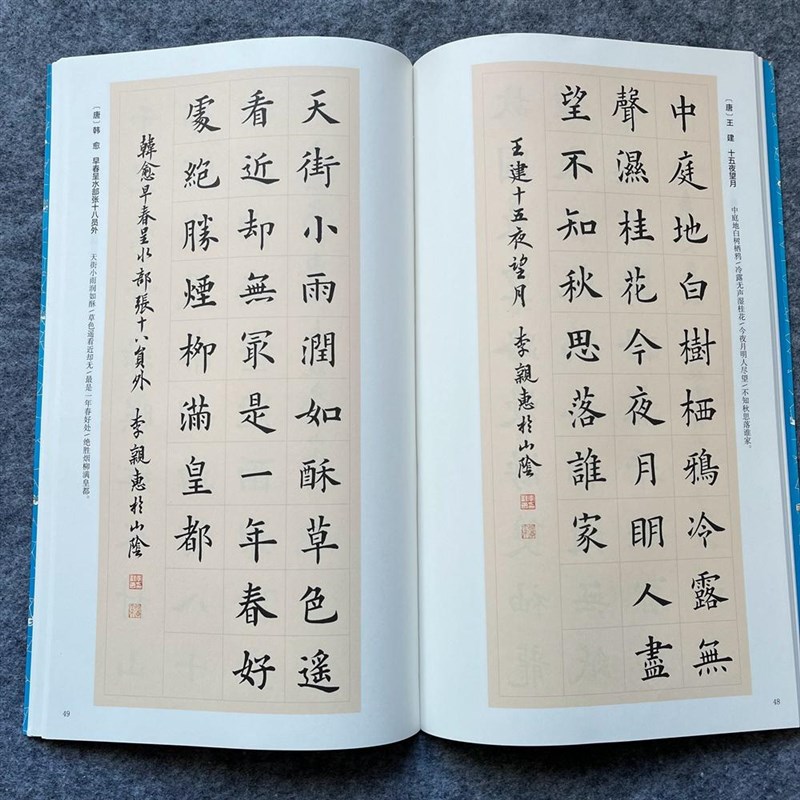 〔唐〕王 建 十五夜望月
中庭地白树栖鸦/冷露无声湿桂花/今夜月明人尽望/不知秋思落谁家。
中庭地白樹栖鴉冷露無
聲濕桂花今夜月明人盡
望不知秋思落誰家
王建十五夜望月 李親惠於山陰
48
天街小雨潤如酥草色遥
看近却無冣是一年春好
處絶勝煙柳滿皇都
韓愈早春呈水部張十八員外 李親惠於山陰
天街小雨润如酥/草色遥看近却无/最是一年春好处/绝胜烟柳满皇都。
〔唐〕韩 愈 早春呈水部张十八员外
49